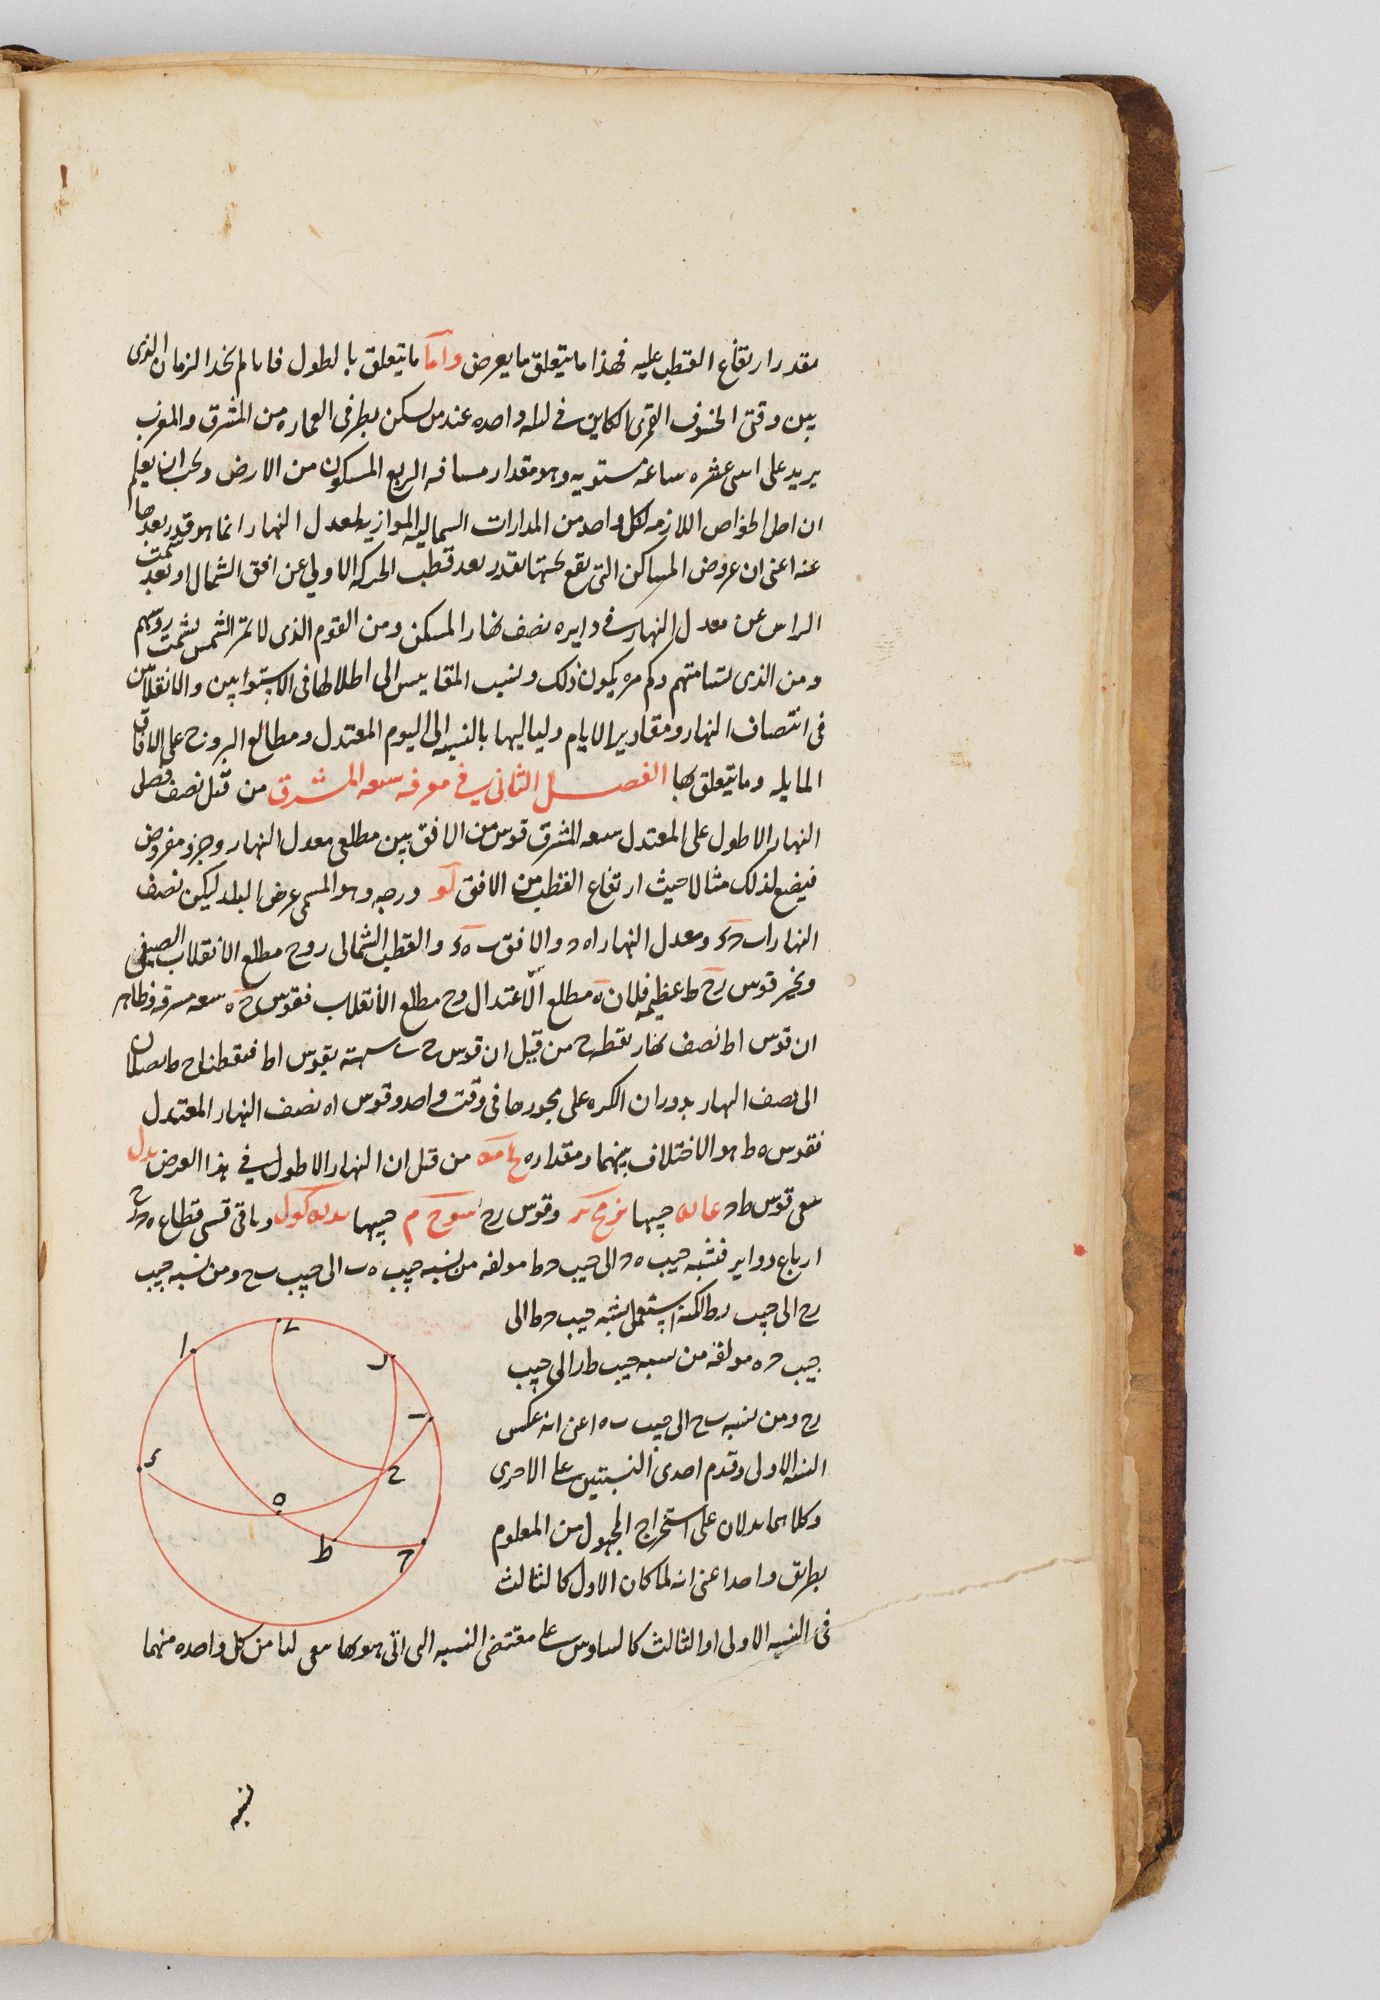 بقدر ارتفاع القطب عليه فهذا ما يتعلق بما يعرض واما ما يتعلق بالطول فانا لم نجد الزمان الذى
بين وقتى الخسوف القمرى الكاين فى ليله واحده عند من يسكن بطرفى العماره من المشرق والمغرب
يزيد على اثنى عشره ساعه مستويه وهو مقدار مسافه الربع المسكون من الارض ويجب ان يعلم
ان اصل الخواص اللازمه لكل واحد من المدارات الشماليه الموازيه لمعدل النهار انما هو قدر بعدها
عنه اعنى ان عروض المساكن التى يقع تحتها بقدر بعد قطب الحركه الاولى عن افق الشمال او بعد سمت
الراس عن معدل النهار فى دايره نصف نهار المسكن ومن القوم الذى لا تمر الشمس بسمت روسهم
ومن الذى تسامتهم وكم مره يكون ذلك ونسب المقاييس الى اظلالها فى الاستوايين والانقلابين
فى انتصاف النهار ومقادير الايام ولياليها بالنسبه الى اليوم المعتدل ومطالع البروج على الافاق
المايله وما يتعلق بها الفصل الثانى فى معرفه سعه المشرق من قبل نصف فضل
النهار الاطول على المعتدل سعه المشرق قوس من الافق بين مطلعى معدل النهار وجزو مفروض
فيضع لذلك مثالا حيث ارتفاع القطب من الافق لو درجه وهو المسمى عرض البلد ليكن نصف
النهار ا ب ح د ومعدل النهار ا ه ح والافق ب ه د والقطب الشمالى ر و ح مطلع الانقلاب الصيفى
ونخرج قوس ر ح ط عظيمه فلان ه مطلع الاعتدال و ح مطلع الانقلاب فقوس ح ه سعه مشرقه وظاهر
ان قوس ا ط نصف نهار نقطه ح من قبل ان قوس ح ب شبيهه بقوس ا ط فنقطتا ح ط يصلان
الى نصف النهار بدوران الكره على محورها فى وقت واحد وقوس ا ه نصف النهار المعتدل
فقوس ه ط هو الاختلاف بينهما ومقداره يح مه من قبل ان النهار الاطول فى هذا العرض يد ل
يبقى قوس ط ح عا يه جيبها وقوس ر ح جيبها وباقى قسى قطاع
ارباع دواير فنسبه جيب ه ح الى جيب ح ط مولفه من نسبه جيب ه ب الى جيب ب ح ومن نسبه جيب
ر ح الى جيب ر ط لكنه استعمل نسبه جيب ح ط الى
جيب ح ه مولفه من نسبه جيب ط ر الى جيب
ر ح ومن نسبه ب ح الى جيب ب ه اعنى انه عكس
النسبه الاولى وقدم احدى النسبتين على الاخرى
وكلاهما يدلان على استخراج المجهول من المعلوم
بطريق واحد اعنى انه لما كان الاول كالثالث
فى النسبه الاولى او الثالث كالسادس على مقتضى النسبه التى اتى هو بها بقى لنا من كل واحده منهما
ا
ر
ب
د
ح
ه
ط
ح
نسبه